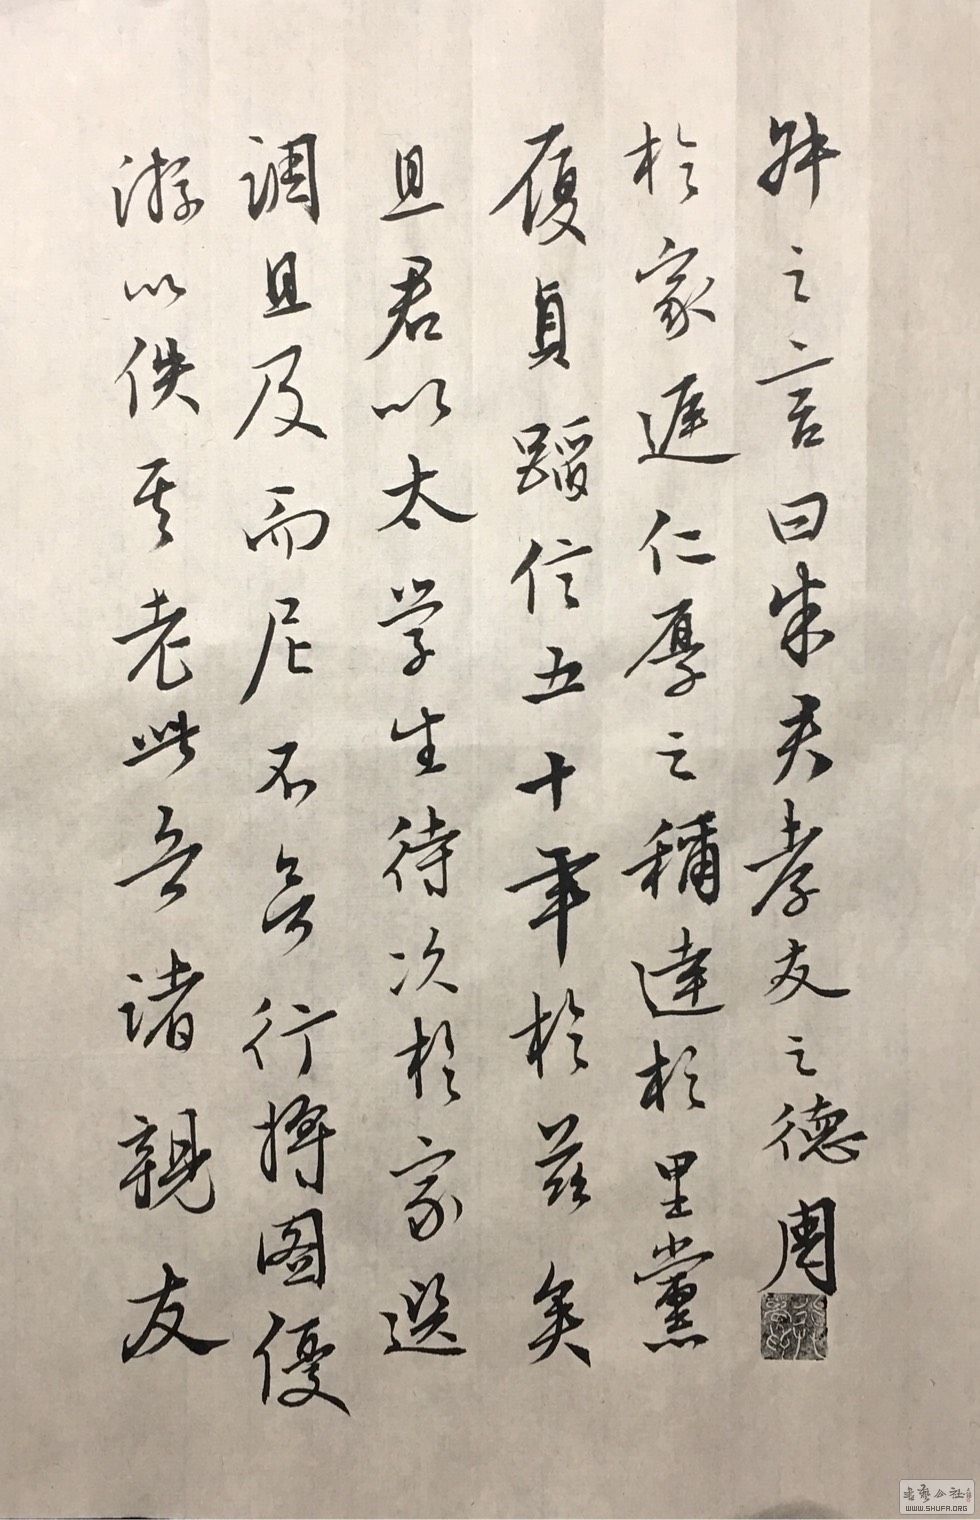 之言曰朱君孝友之德周
於家庭仁厚之稱達於里黨
履貞蹈信五十年於茲矣
且君以太学生待次於家選
調且及而尼不行將图優
游以佚其老此吾諸親友
WWW.SHUFA.ORG